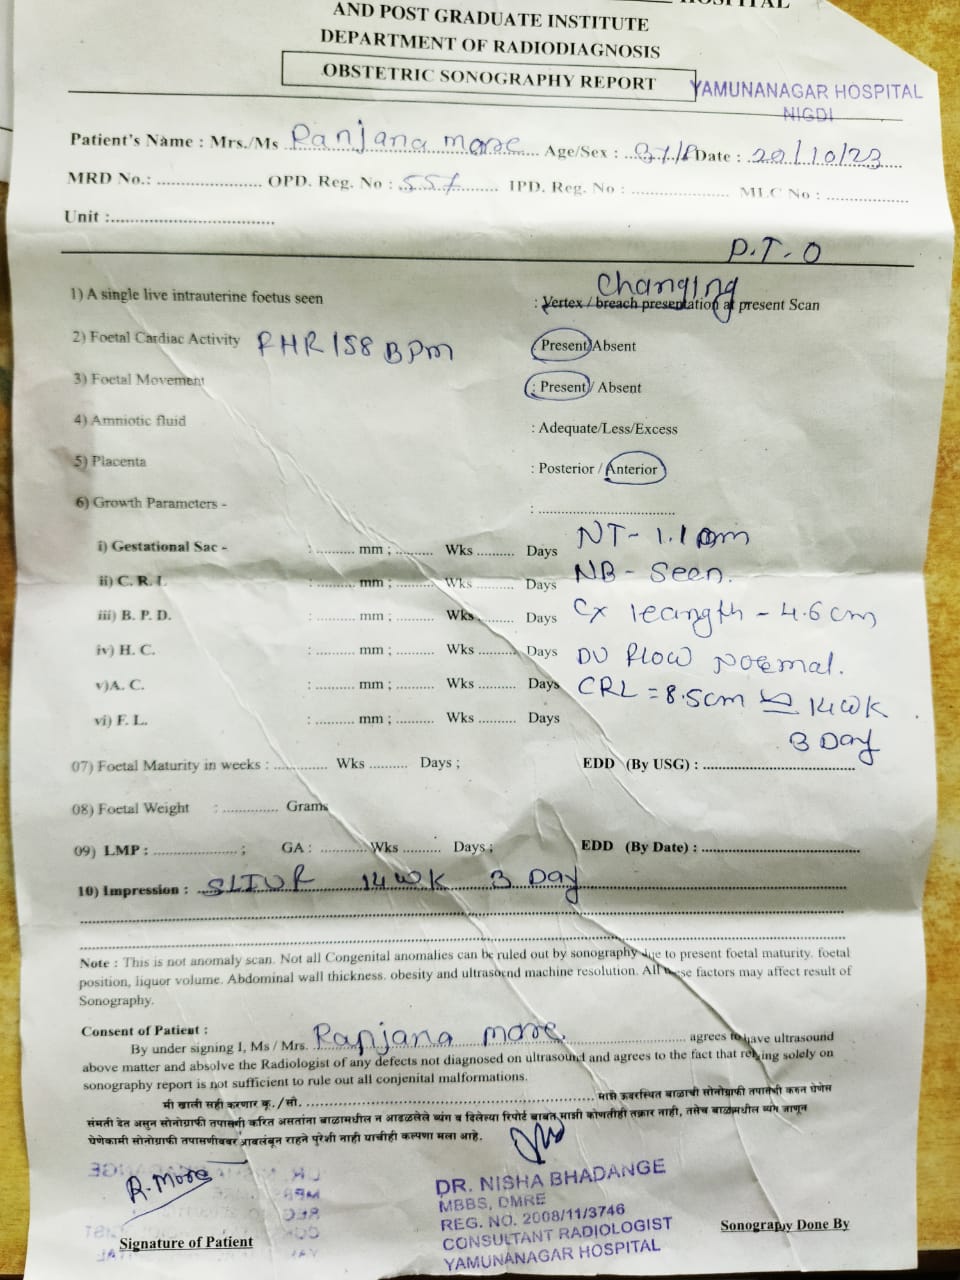 HOSPITAL
AND POST GRADUATE INSTITUTE
DEPARTMENT OF RADIODIAGNOSIS
OBSTETRIC SONOGRAPHY REPORT
YAMUNANAGAR HOSPITAL
NIGDI
Patient's Name : Mrs./Ms Ranjana more Age/Sex : Date : 20/10/23
MRD No.: .................... OPD. Reg. No : 557 IPD. Reg. No : .................... MLC No : ....................
Unit :....................
P.T.O
changing
1) A single live intrauterine foetus seen : Vertex / breach presentation at present Scan
2) Foetal Cardiac Activity FHR 158 BPM Present/Absent
3) Foetal Movement : Present / Absent
4) Amniotic fluid : Adequate/Less/Excess
5) Placenta : Posterior / Anterior
6) Growth Parameters - : ....................
i) Gestational Sac - : .......... mm ; .......... Wks .......... Days NT - 1.1
ii) C. R. L : .......... mm ; .......... Wks .......... Days NB - Seen.
iii) B. P. D. : .......... mm ; .......... Wks .......... Days Cx leangth - 4.6 cm
iv) H. C. : .......... mm ; .......... Wks .......... Days DV flow normal.
v)A. C. : .......... mm ; .......... Wks .......... Days CRL = 8.5cm ≃ 14 WK
vi) F. L. : .......... mm ; .......... Wks .......... Days 3 Day
07) Foetal Maturity in weeks : .......... Wks .......... Days ; EDD (By USG) : ....................
08) Foetal Weight : .......... Grams
09) LMP : .................... ; GA : .......... Wks .......... Days ; EDD (By Date) : ....................
10) Impression : SLIUF 14 WK 3 Day
Note : This is not anomaly scan. Not all Congenital anomalies can be ruled out by sonography due to present foetal maturity. foetal
position, liquor volume. Abdominal wall thickness. obesity and ultrasound machine resolution. All these factors may affect result of
Sonography.
Consent of Patient :
By under signing I, Ms / Mrs. Ranjana more agrees to have ultrasound
above matter and absolve the Radiologist of any defects not diagnosed on ultrasound and agrees to the fact that relying solely on
sonography report is not sufficient to rule out all conjenital malformations.
मी खाली सही करणार कु./सौ. .................... माझे ऊवरस्थित बाळाची सोनोग्राफी तपासणी करुन घेणेस
संमती देत असुन सोनोग्राफी तपासणी करित असतांना बाळामधील न आढळलेले व्यंग व दिलेल्या रिपोर्ट बाबत माझी कोणतीही तक्रार नाही, तसेच बाळामधील व्यंग जाणून
घेणेकामी सोनोग्राफी तपासणीवर आवलंबून राहने पुरेशी नाही याचीही कल्पणा मला आहे.
R. More
Signature of Patient
DR. NISHA BHADANGE
MBBS, DMRE
REG. NO. 2008/11/3746
CONSULTANT RADIOLOGIST
YAMUNANAGAR HOSPITAL
Sonography Done By